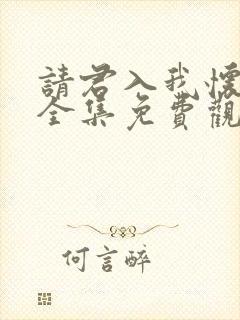 請君入我懷
全集免費觀
何言醉